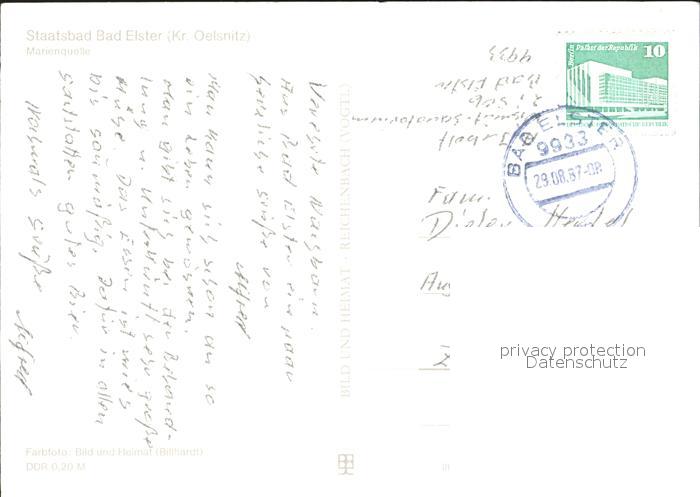 Staatsbad Bad Elster (Kr. Oelsnitz)
Marienquelle
Verehrte Nachbarn.
Aus Bad Elster ein paar
herzliche Grüße von
Alfred
Man kann sich schon an so
ein Leben gewöhnen.
Man gibt sich bei der Behand-
lung u. Unterkunft sehr große
Mühe. Das Essen ist mies
bis saumäßig, dafür in allen
Gaststätten gutes Bier.
Nochmals Grüße
Alfred
BILD UND HEIMAT · REICHENBACH (VOGTL)
Farbfoto: Bild und Heimat (Billhardt)
DDR 0,20 M
Berlin Palast der Republik 10
DEUTSCHE DEMOKRATISCHE REPUBLIK
BAD ELSTER
9933
29.08.87-08
Bad Elster
9933
Fam.
Dieter
privacy protection
Datenschutz